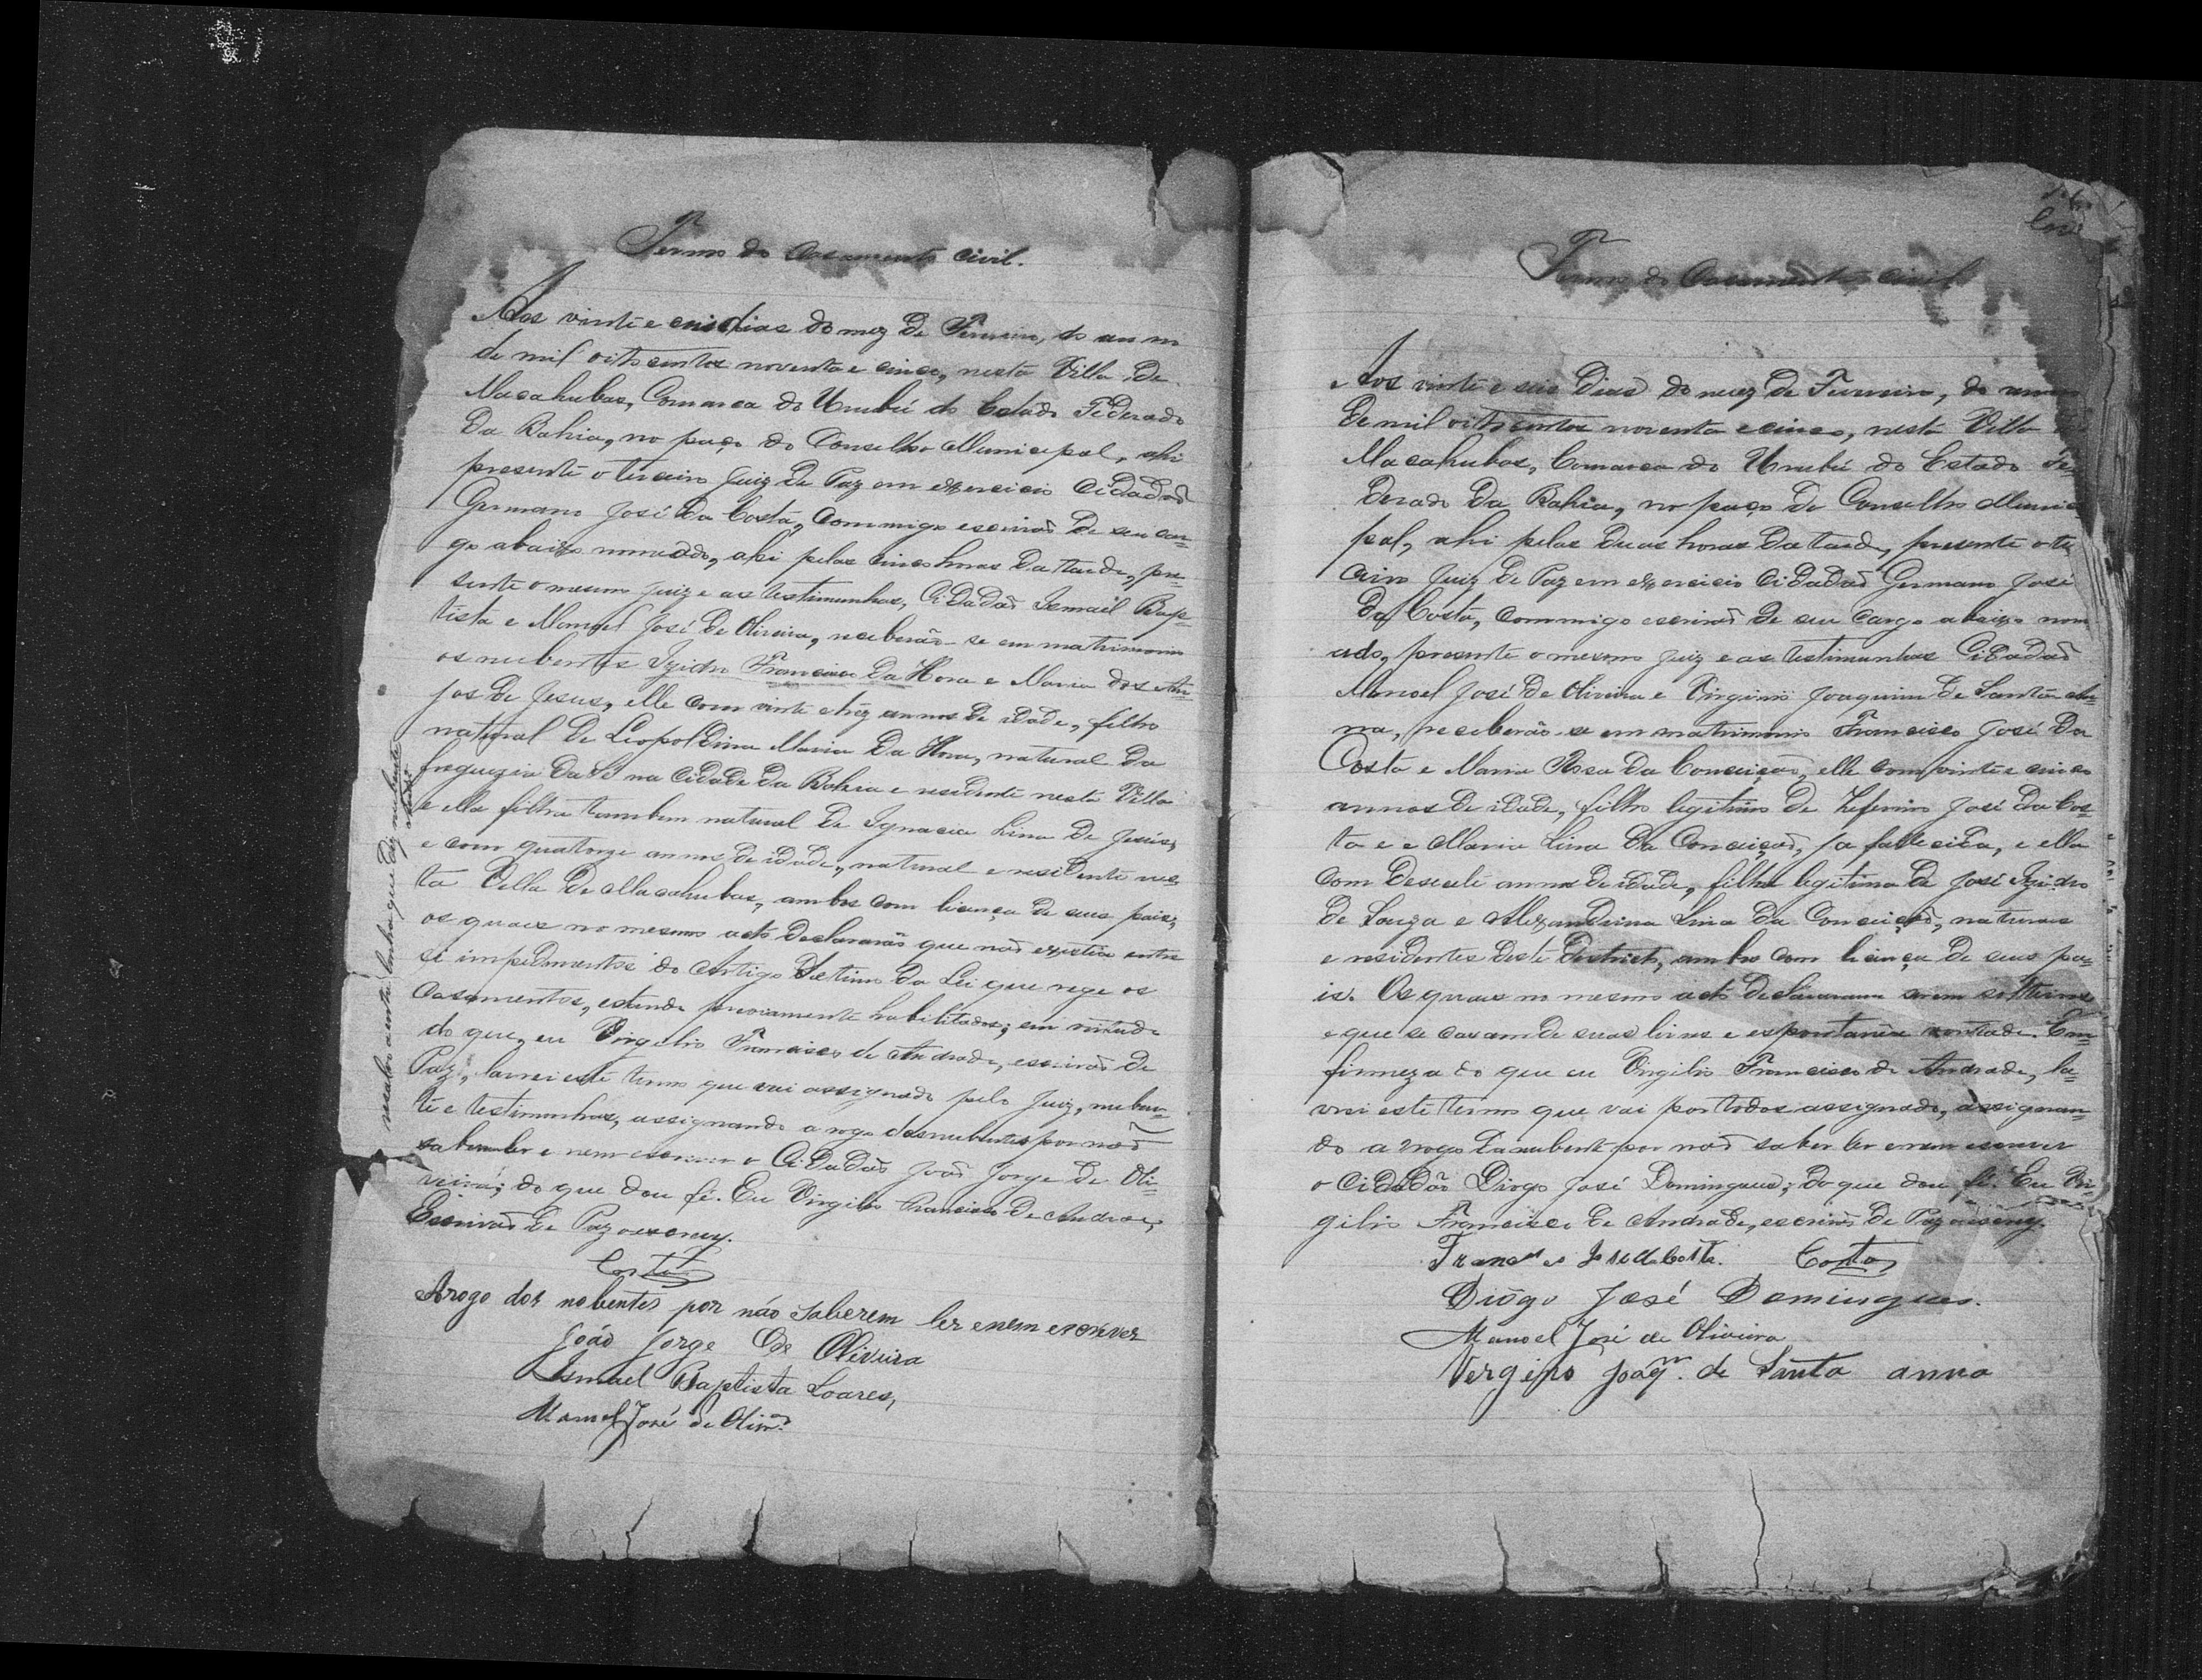 Termo do Casamento civil.
Aos vinte e seis dias do mez de Fevereiro, do anno
de mil oitocentos noventa e cinco, nesta Villa de
Macahubas, Comarca do Urubú do Estado Federado
da Bahia, no paço do Conselho Municipal, ahi
presente o terceiro Juiz de Paz em exercicio Cidadão
Germano José da Costa, commigo escrivão de seu car=
go abaixo nomeado, ahi pelas cinco horas da tarde, pre=
sente o mesmo Juiz e as testimunhas, Cidadãos Ismael Bap=
tista e Manoel José de Oliveira, receberão-se em matrimonio
os nubentes Izidro Francisco da Hora e Maria dos An=
jos de Jesus, elle com vinte e trez annos de idade, filho
natural de Leopoldina Maria da Hora, natural da
freguezia da Sé na Cidade da Bahia e residente nesta Villa
e ella filha tambem natural de Ignacia Lina de Jesús,
e com quatorze annos de idade, natural e residente nes=
ta Villa de Macahubas, ambos com licença de seus pais;
os quaes no mesmo acto declararão que não existia entre
si impedimentos do artigo Setimo da Lei que rege os
casamentos, estando previamente habilitados; em virtude
do que, eu Virgilio Francisco de Andrade, escrivão de
Paz, lavrei este termo que vai assignado pelo Juiz, nuben=
te e testimunhas, assignando a rogo dos nubentes por não
saberem ler e nem escrever o Cidadão João Jorge de Oli=
veira; do que dou fé. Eu Virgilio Francisco de Andrade,
Escrivão de Paz o escrevy.
Costa
Arogo dos nobentes por não saberem ler enem escrever
João Jorge de Oliveira
Ismael Baptista Soares,
Manoel José de Olivrª
resalvo a entre linha que diz nubente
Termo do Casamento civil
Aos vinte e seis dias do mez de Fevereiro, do anno
de mil oitocentos noventa e cinco, nesta Villa de
Macahubas, Comarca do Urubú do Estado Fe=
derado da Bahia, no paço do Conselho Munici=
pal, ahi pelas duas horas da tarde, presente o ter
ceiro Juiz de Paz em exercicio Cidadão Germano José
da Costa, commigo escrivão de seu cargo abaixo nom
eado, presente o mesmo Juiz e as testimunhas Cidadãos
Manoel José de Oliveira e Virginio Joaquim de Santa An=
na, receberão-se em matrimonio Francisco José da
Costa e Maria Rosa da Conceição, elle com vinte e cinco
annos de idade, filho legitimo de Zeferino José da Cos=
ta e e Maria Lina da Conceição, ja fallecida, e ella
com desesete annos de idade, filha legitima de José Izidro
de Souza e Alexandrina Lina da Conceição, naturaes
e residentes deste districto, ambos com licença de seus pa=
is. Os quaes no mesmo acto declararam serem solteiros
e que se casam de suas livres e espontanea vontade. Em=
firmeza do que eu Virgilio Francisco de Andrade, la=
vrei este termo que vai por todos assignado, assignan=
do a rogo da nubente por não saber ler e nem escrever
o Cidadão Diogo José Domingues; do que dou fé. Eu Vir=
gilio Francisco de Andrade, escrivão de Paz o escrevy.
Francisco José da Costa. Costa
Diogo José Domingues.
Manoel José de Oliveira
Verginio Joaqm. de Santa anna